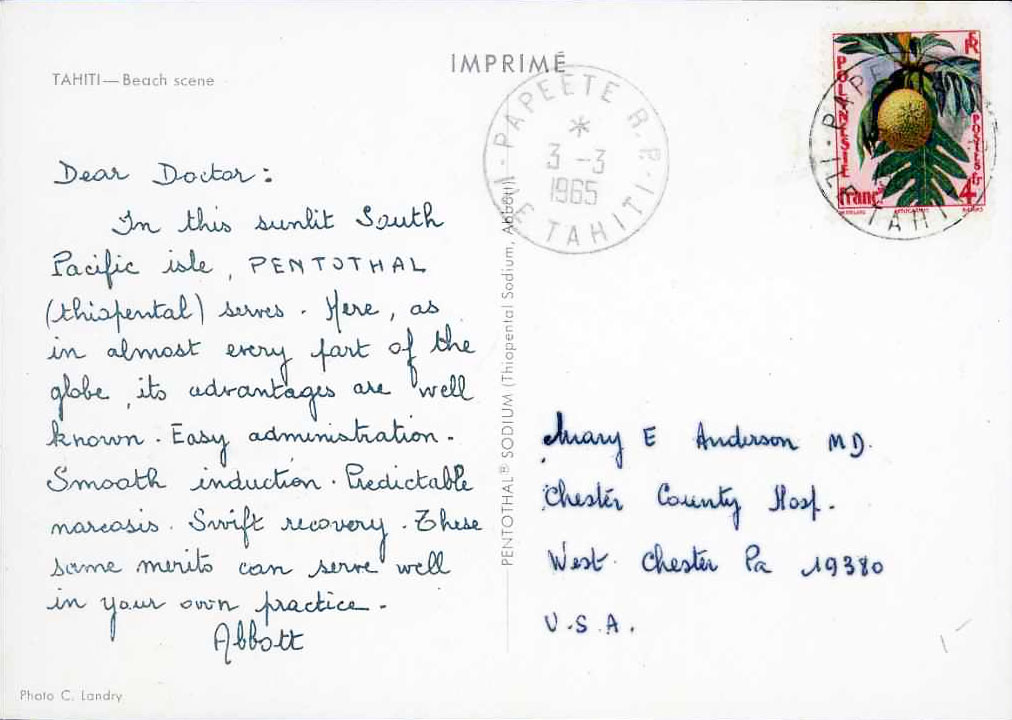 IMPRIMÉ
TAHITI—Beach scene
PAPEETE R.P.
*
3 -3
1965
ILE TAHITI
POLYNESIE
RF
POSTES
4 francs
PAPE
ILE TAHI
Dear Doctor:
In this sunlit South
Pacific isle, PENTOTHAL
(thiopental) serves. Here, as
in almost every part of the
globe, its advantages are well
known. Easy administration.
Smooth induction. Predictable
narcosis. Swift recovery. These
same merits can serve well
in your own practice.
Abbott
PENTOTHAL® SODIUM (Thiopental Sodium, Abbott)
Mary E Anderson MD.
Chester County Hosp.
West Chester Pa 19380
U.S.A.
Photo C. Landry